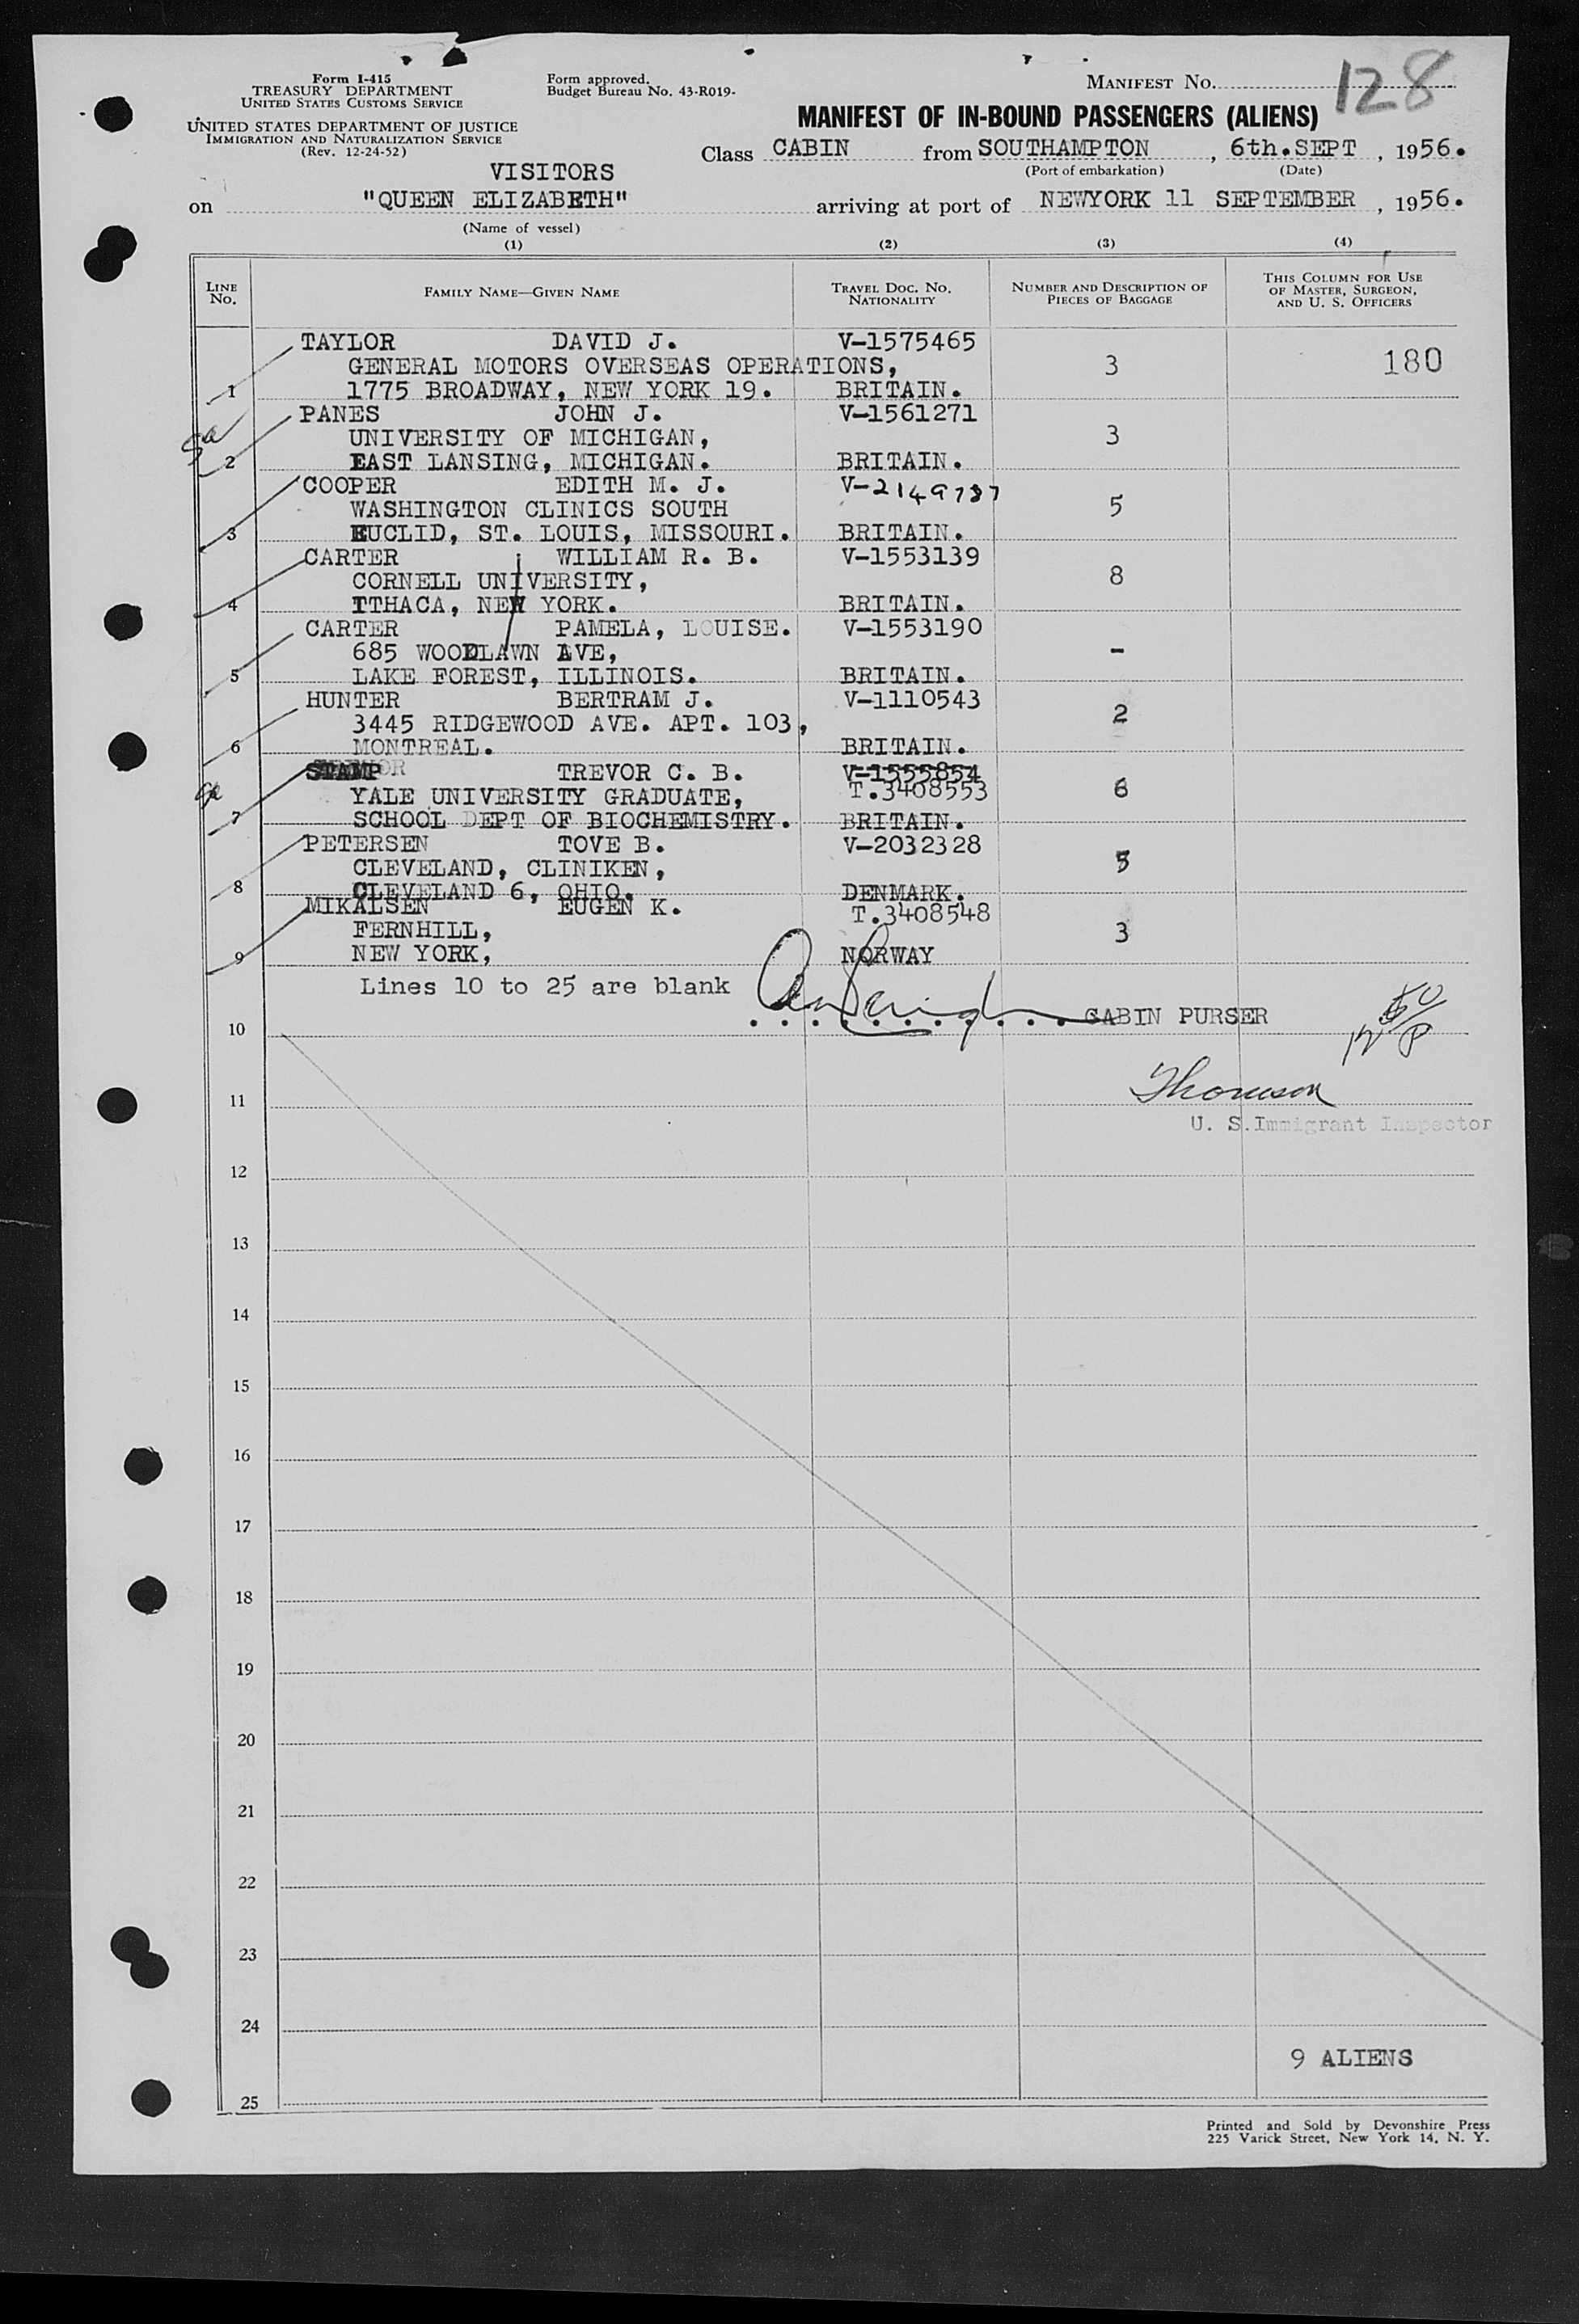 Form I-415
TREASURY DEPARTMENT
UNITED STATES CUSTOMS SERVICE
UNITED STATES DEPARTMENT OF JUSTICE
IMMIGRATION AND NATURALIZATION SERVICE
(Rev. 12-24-52)
Form approved.
Budget Bureau No. 43-R019-
MANIFEST No. 128
MANIFEST OF IN-BOUND PASSENGERS (ALIENS)
Class CABIN from SOUTHAMPTON, 6th.SEPT, 1956.
(Port of embarkation) (Date)
VISITORS
on "QUEEN ELIZABETH" arriving at port of NEWYORK 11 SEPTEMBER, 1956.
(Name of vessel)
(1) (2) (3) (4)
LINE No. FAMILY NAME—GIVEN NAME TRAVEL DOC. No. NATIONALITY NUMBER AND DESCRIPTION OF PIECES OF BAGGAGE THIS COLUMN FOR USE OF MASTER, SURGEON, AND U. S. OFFICERS
TAYLOR DAVID J. V-1575465
GENERAL MOTORS OVERSEAS OPERATIONS, 3 180
1 1775 BROADWAY, NEW YORK 19. BRITAIN.
PANES JOHN J. V-1561271
UNIVERSITY OF MICHIGAN, 3
2 EAST LANSING, MICHIGAN. BRITAIN.
COOPER EDITH M. J. V-2149737
WASHINGTON CLINICS SOUTH 5
3 EUCLID, ST. LOUIS, MISSOURI. BRITAIN.
CARTER WILLIAM R. B. V-1553139
CORNELL UNIVERSITY, 8
4 ITHACA, NEW YORK. BRITAIN.
CARTER PAMELA, LOUISE. V-1553190
685 WOODLAWN AVE, -
5 LAKE FOREST, ILLINOIS. BRITAIN.
HUNTER BERTRAM J. V-1110543
3445 RIDGEWOOD AVE. APT. 103, 2
6 MONTREAL. BRITAIN.
STAMP TREVOR C. B. V-1555854
T.3408553
YALE UNIVERSITY GRADUATE, 6
7 SCHOOL DEPT OF BIOCHEMISTRY. BRITAIN.
PETERSEN TOVE B. V-2032328
CLEVELAND, CLINIKEN, 5
8 CLEVELAND 6, OHIO. DENMARK.
MIKALSEN EUGEN K. T.3408548
FERNHILL, 3
9 NEW YORK, NORWAY
Lines 10 to 25 are blank
10 CABIN PURSER
Thomson
11
U. S. Immigrant Inspector
12
13
14
15
16
17
18
19
20
21
22
23
24
9 ALIENS
25
Printed and Sold by Devonshire Press
225 Varick Street, New York 14, N. Y.